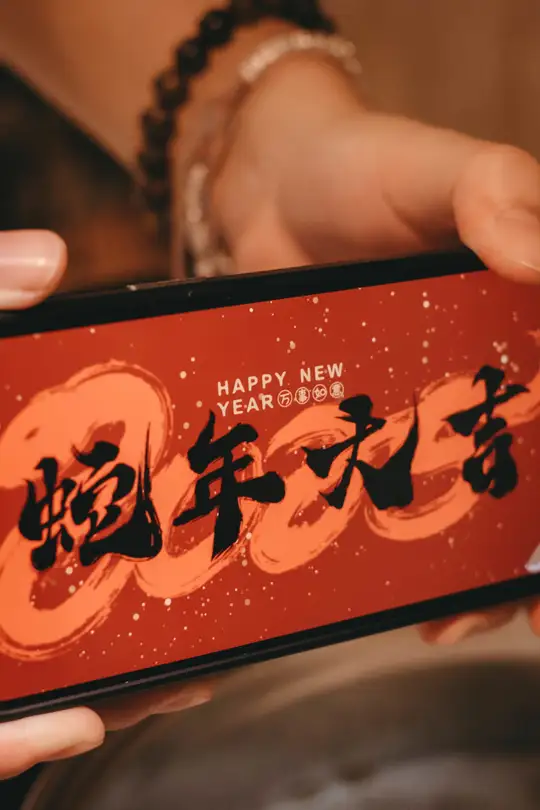 HAPPY NEW
YEAR万事如意
蛇年大吉